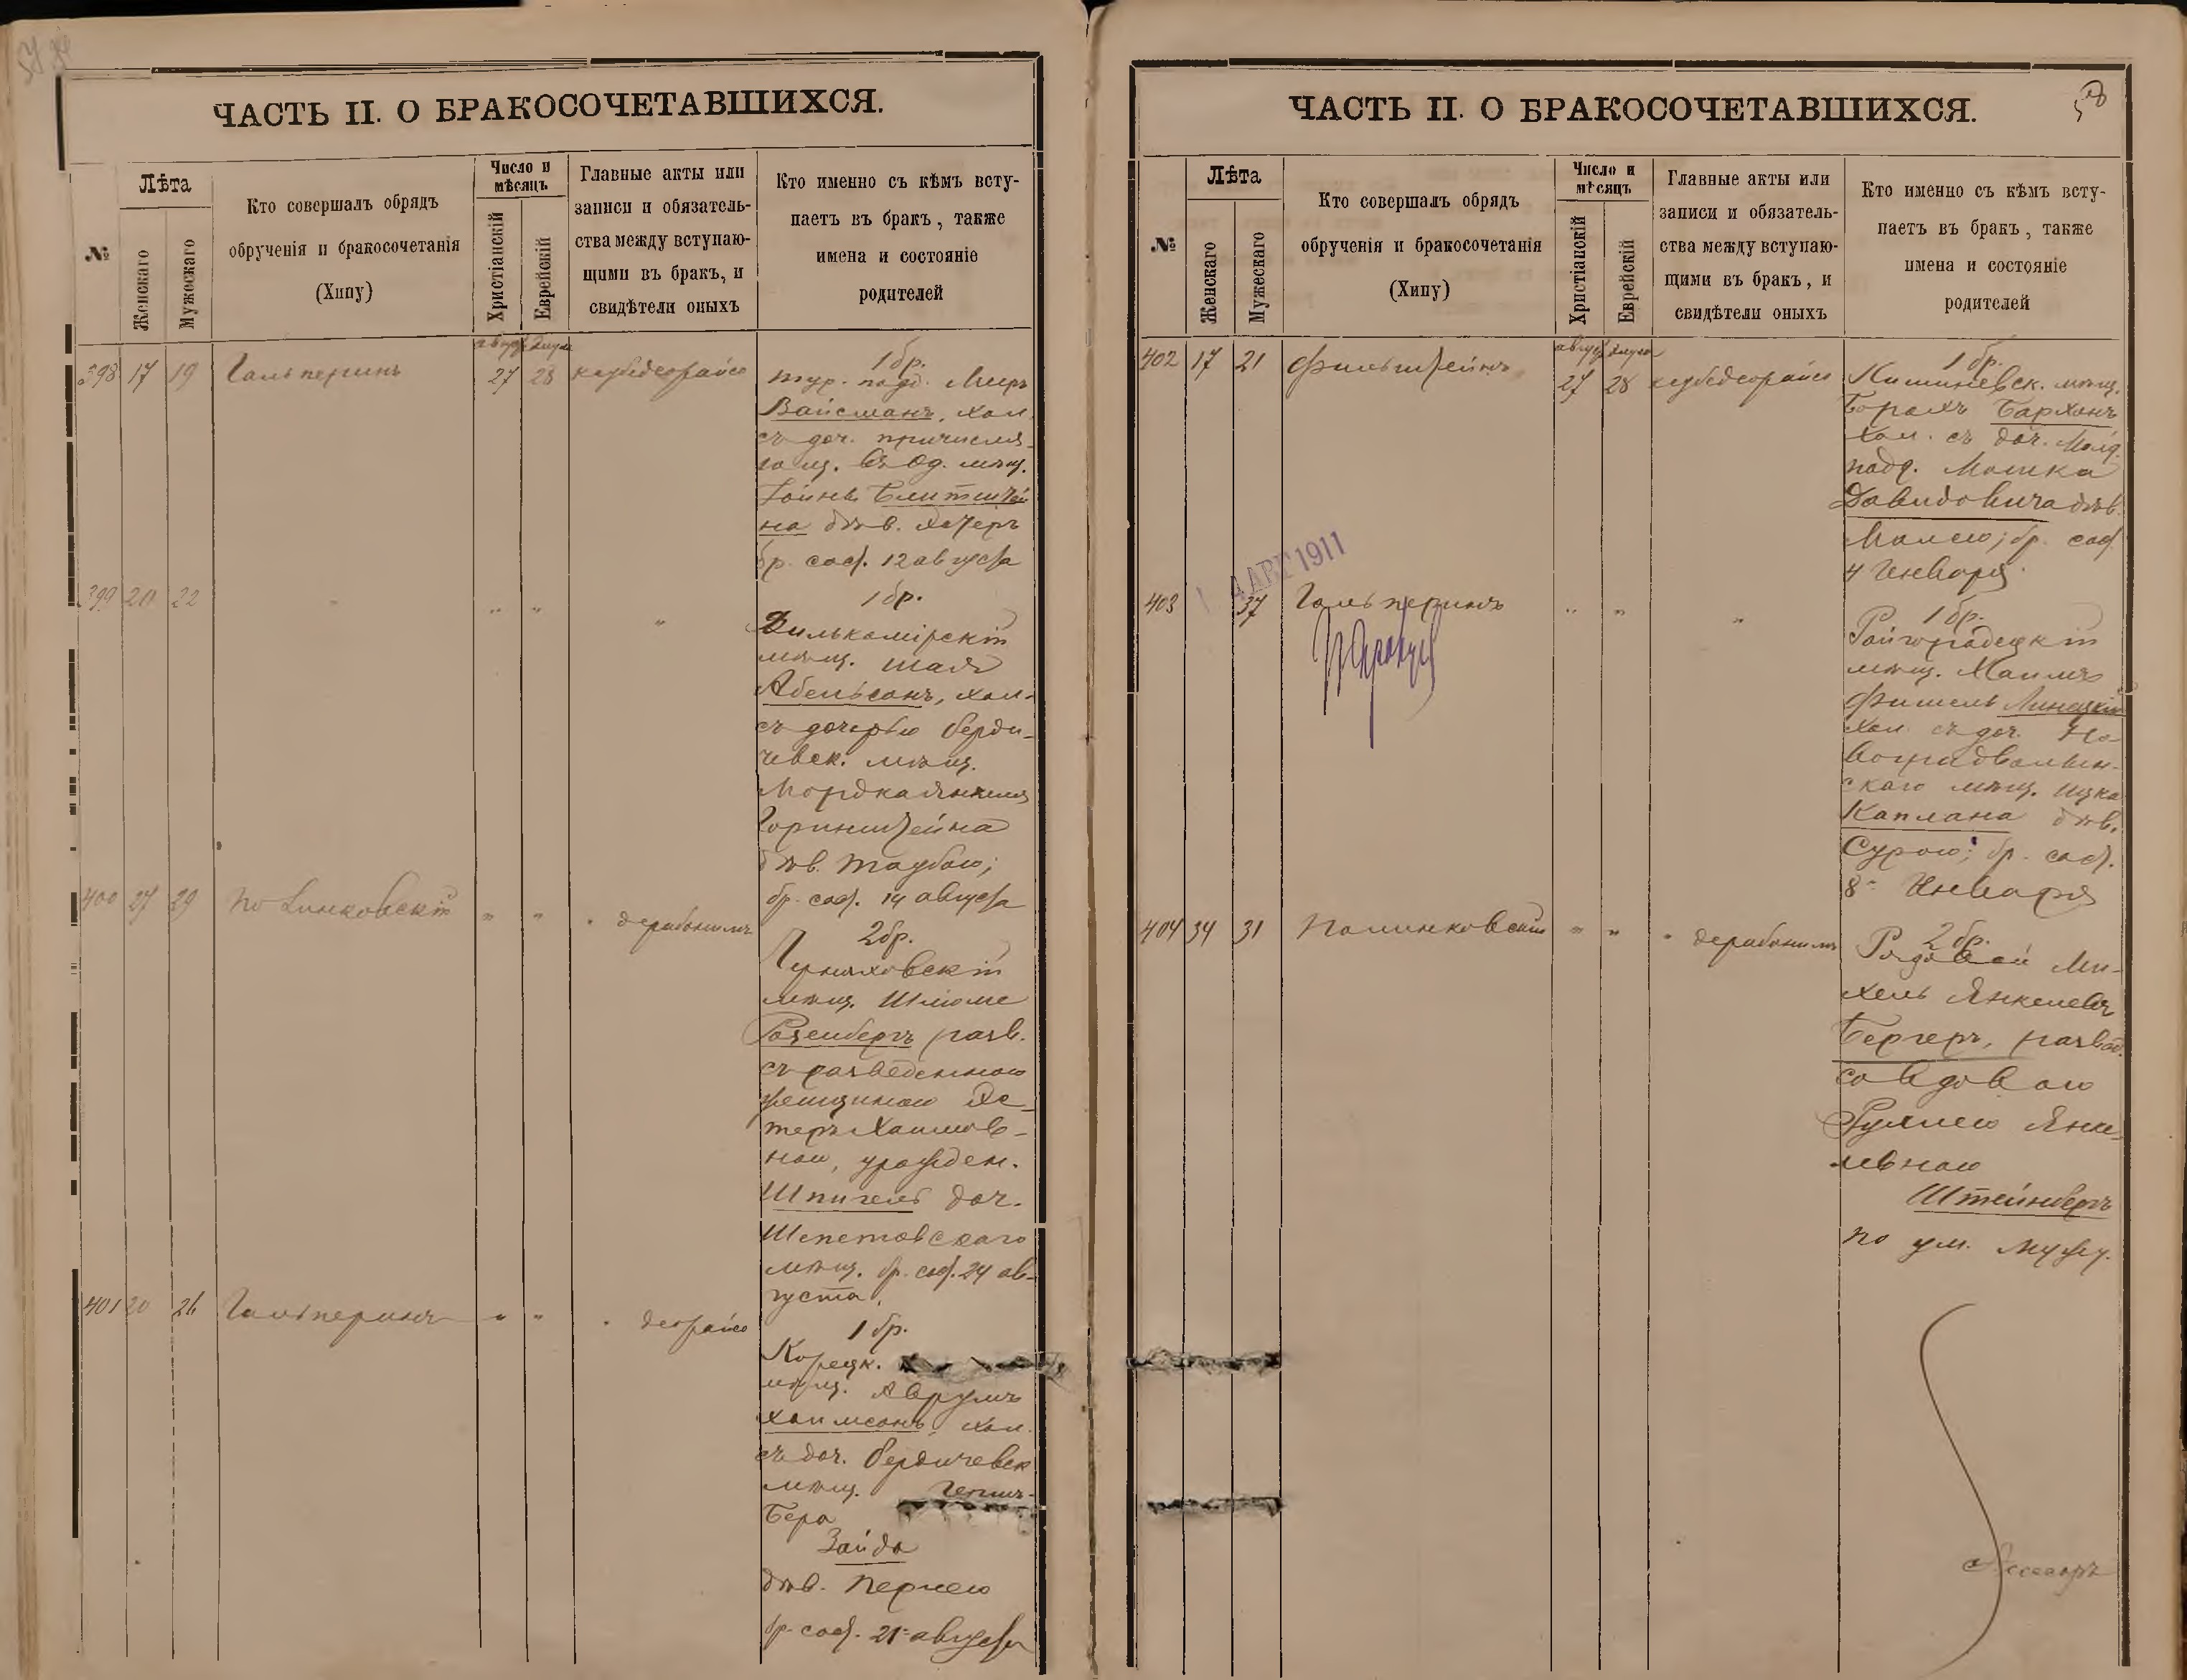 ЧАСТЬ II. О БРАКОСОЧЕТАВШИХСЯ.
№
Лѣта
Женскаго
Мужескаго
Кто совершалъ обрядъ
обрученія и бракосочетанія
(Хипу)
Число и
мѣсяцъ
Христіанскій
Еврейскій
Главные акты или
записи и обязатель-
ства между вступаю-
щими въ бракъ, и
свидѣтели оныхъ
Кто именно съ кѣмъ всту-
паетъ въ бракъ, также
имена и состояніе
родителей
398 17 19 Гальперинъ 27 28
1 бр.
тур. подд. Меиръ
Вайсманъ, хол.
съ доч. причисля-
ющ. въ Од. мѣщ.
дѣв. Эстеръ
бр. сост. 12 августа
399 20 22 " " " "
1 бр.
Вилькомирскій
мѣщ. Шая
Абельсонъ, хол.
съ дочерью Берди-
чевск. мѣщ.
Мордка Янкеля
Горинштейна
дѣв. Таубою;
бр. сост. 14 августа
400 27 29 Полинковскій " " " дерабонимъ
2 бр.
Черняховскій
мѣщ. Шлиоме
Розенбергъ разв.
съ разведенною
женщиною Эс-
теръ Хаимов-
ною, урожден.
Шпигель доч.
Шепетовскаго
мѣщ. бр. сост. 24 ав-
густа.
401 20 26 Гальперинъ " " " деорайсо
1 бр.
Корецк.
мѣщ. Аврумъ
Хаимсонъ, хол.
съ доч. Бердичевск
мѣщ. Герш-
Бера
Зайда
дѣв. Перлею
бр. сост. 21 августа
ЧАСТЬ II. О БРАКОСОЧЕТАВШИХСЯ.
№
Лѣта
Женскаго
Мужескаго
Кто совершалъ обрядъ
обрученія и бракосочетанія
(Хипу)
Число и
мѣсяцъ
Христіанскій
Еврейскій
Главные акты или
записи и обязатель-
ства между вступаю-
щими въ бракъ, и
свидѣтели оныхъ
Кто именно съ кѣмъ всту-
паетъ въ бракъ, также
имена и состояніе
родителей
402 17 21 Фильштейнъ 27 28
1 бр.
Кишиневск. мѣщ.
Борохъ Барханъ
хол. съ доч. Молд.
подд. Мошка
Давидовича дѣв.
Малею; бр. сост.
4 Января
1911
403 37 Гальперинъ " " "
1 бр.
Райгородецкій
мѣщ. Хаимъ
Фишель Линецкій
хол. съ доч. Но-
воградволын-
скаго мѣщ. Ицка
Каплана дѣв.
Сурою; бр. сост.
8 Января
404 34 31 Полинковскій " " " дерабонимъ
2 бр.
Рядовой Ми-
хель Янкелевъ
Бергеръ, развод.
со вдовою
Рухлею Янке-
левною
Штейнбергъ
по ум. мужу.